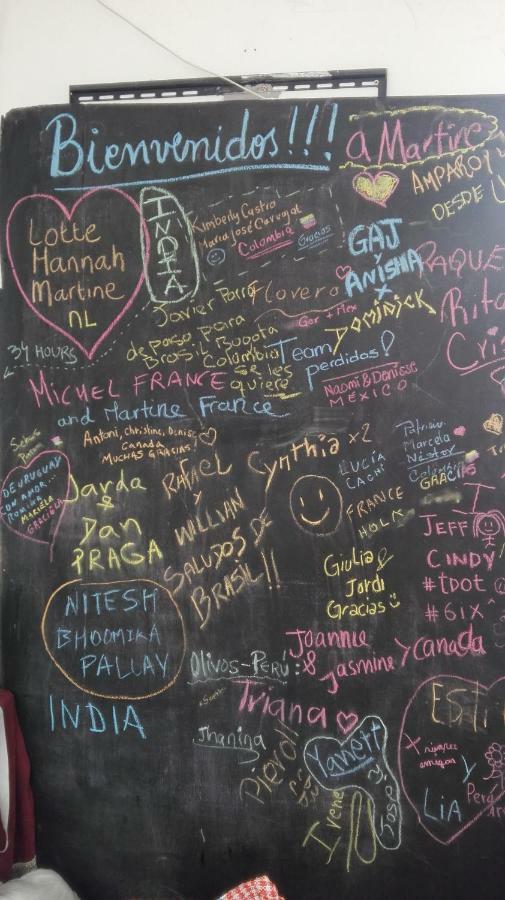 Bienvenidos!!!
a Martine
AMPARO
DESDE
Lotte
Hannah
Martine
NL
INDIA
Kimberly Castro
María José Carvajal
Colombia
Gracias
GAJ
Y
ANISHA
Javier Parra
de paso para
Brasil Bogota
Colombia
se les
quiere
Team
perdidos!
DOMINICK
Naomi & Denisse
MEXICO
34 HOURS
MICHEL FRANCE
and Martine France
Antoni, Christine, Denise
Canada
MUCHAS GRACIAS!
DE URUGUAY
CON AMOR...
ROMINA
MARIELA
GRACIELA
Jarda
&
Dan
PRAGA
RAFAEL
Y
WILLIAN
SALUDOS DE
BRASIL!!
Cynthia x2
LUCÍA
CACHI
FRANCE
HOLA
Patricia
Marcela
Néstor
Colombia
GRACIAS
I
JEFF
CINDY
#tDOT
#6IX
Giulia &
Jordi
Gracias
NITESH
BHOOMIKA
PALLAV
INDIA
Olivos-Perú:
Joannie
& Jasmine y Canada
Triana
Jhanina
Pierol
Yanett
Irene
José
y
LiA
Perú
amigas